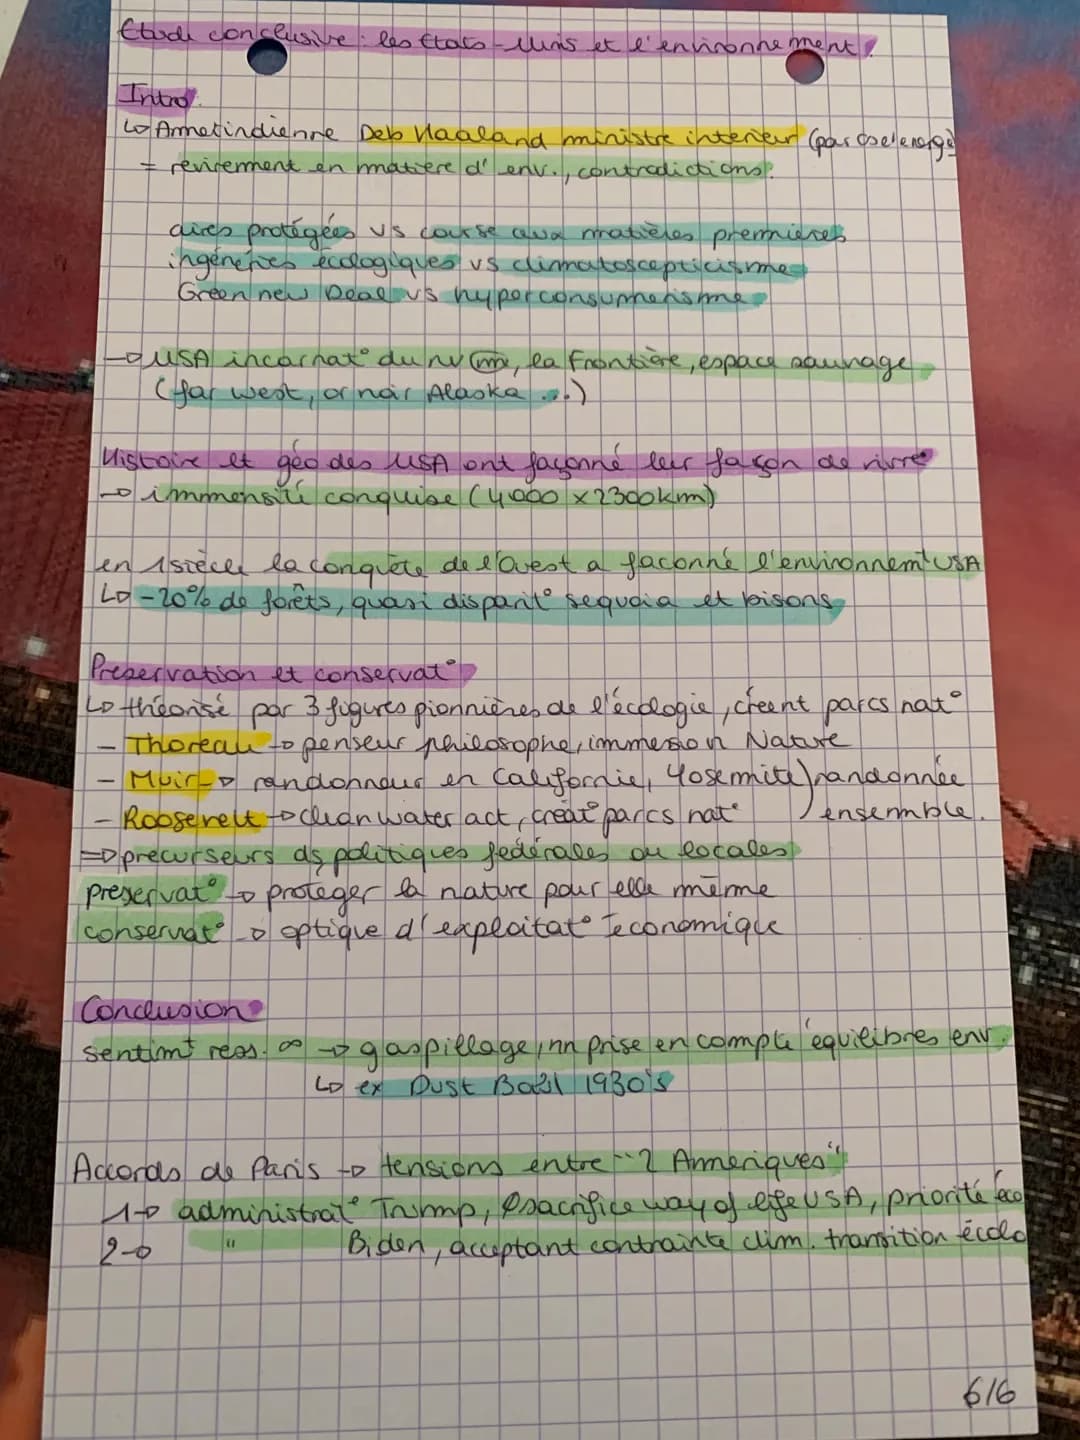 Etude conclusive : les Etats-Unis et l'environnement.
Intro
↳ Amérindienne Deb Haaland ministre interieur (parcs et energie)
= revirement en matière d'env., contradictions.
aires protégées vs course aux matières premières
ingénieries écologiques vs climatoscepticisme
Green new Deal vs hyperconsumérisme
→ USA incarnat° du nv , la Frontière, espace sauvage
(far west, or noir Alaska ...)
Histoire et géo des USA ont façonné leur façon de vivre
→ immensité conquise (4000 x 2300km)
en 1 siècle la conquête de l'Ouest a façonné l'environnemt USA
↳ -20% de forêts, quasi disparit° sequoia et bisons
Preservation et conservat°
↳ théorisé par 3 figures pionnières de l'écologie, créent parcs nat°
- Thoreau → penseur philosophe, immersion Nature
- Muir → randonneur en Californie, Yosemite) randonnée
- Roosevelt → clean water act, créat° parcs nat° ) ensemble.
=> precurseurs ds politiques fédérales ou locales
préservat° → protéger la nature pour elle même
conservat° → optique d'exploitat° économique
Conclusion
sentimt ress. ∞ → gaspillage, nn prise en compte équilibres env.
↳ ex Dust Bowl 1930's
Accords de Paris → tensions entre "2 Ameriques"
1→ administrat° Trump, sacrifice way of life USA, priorité éco
2→ " Biden, acceptant contrainte clim. transition écolo
6/6